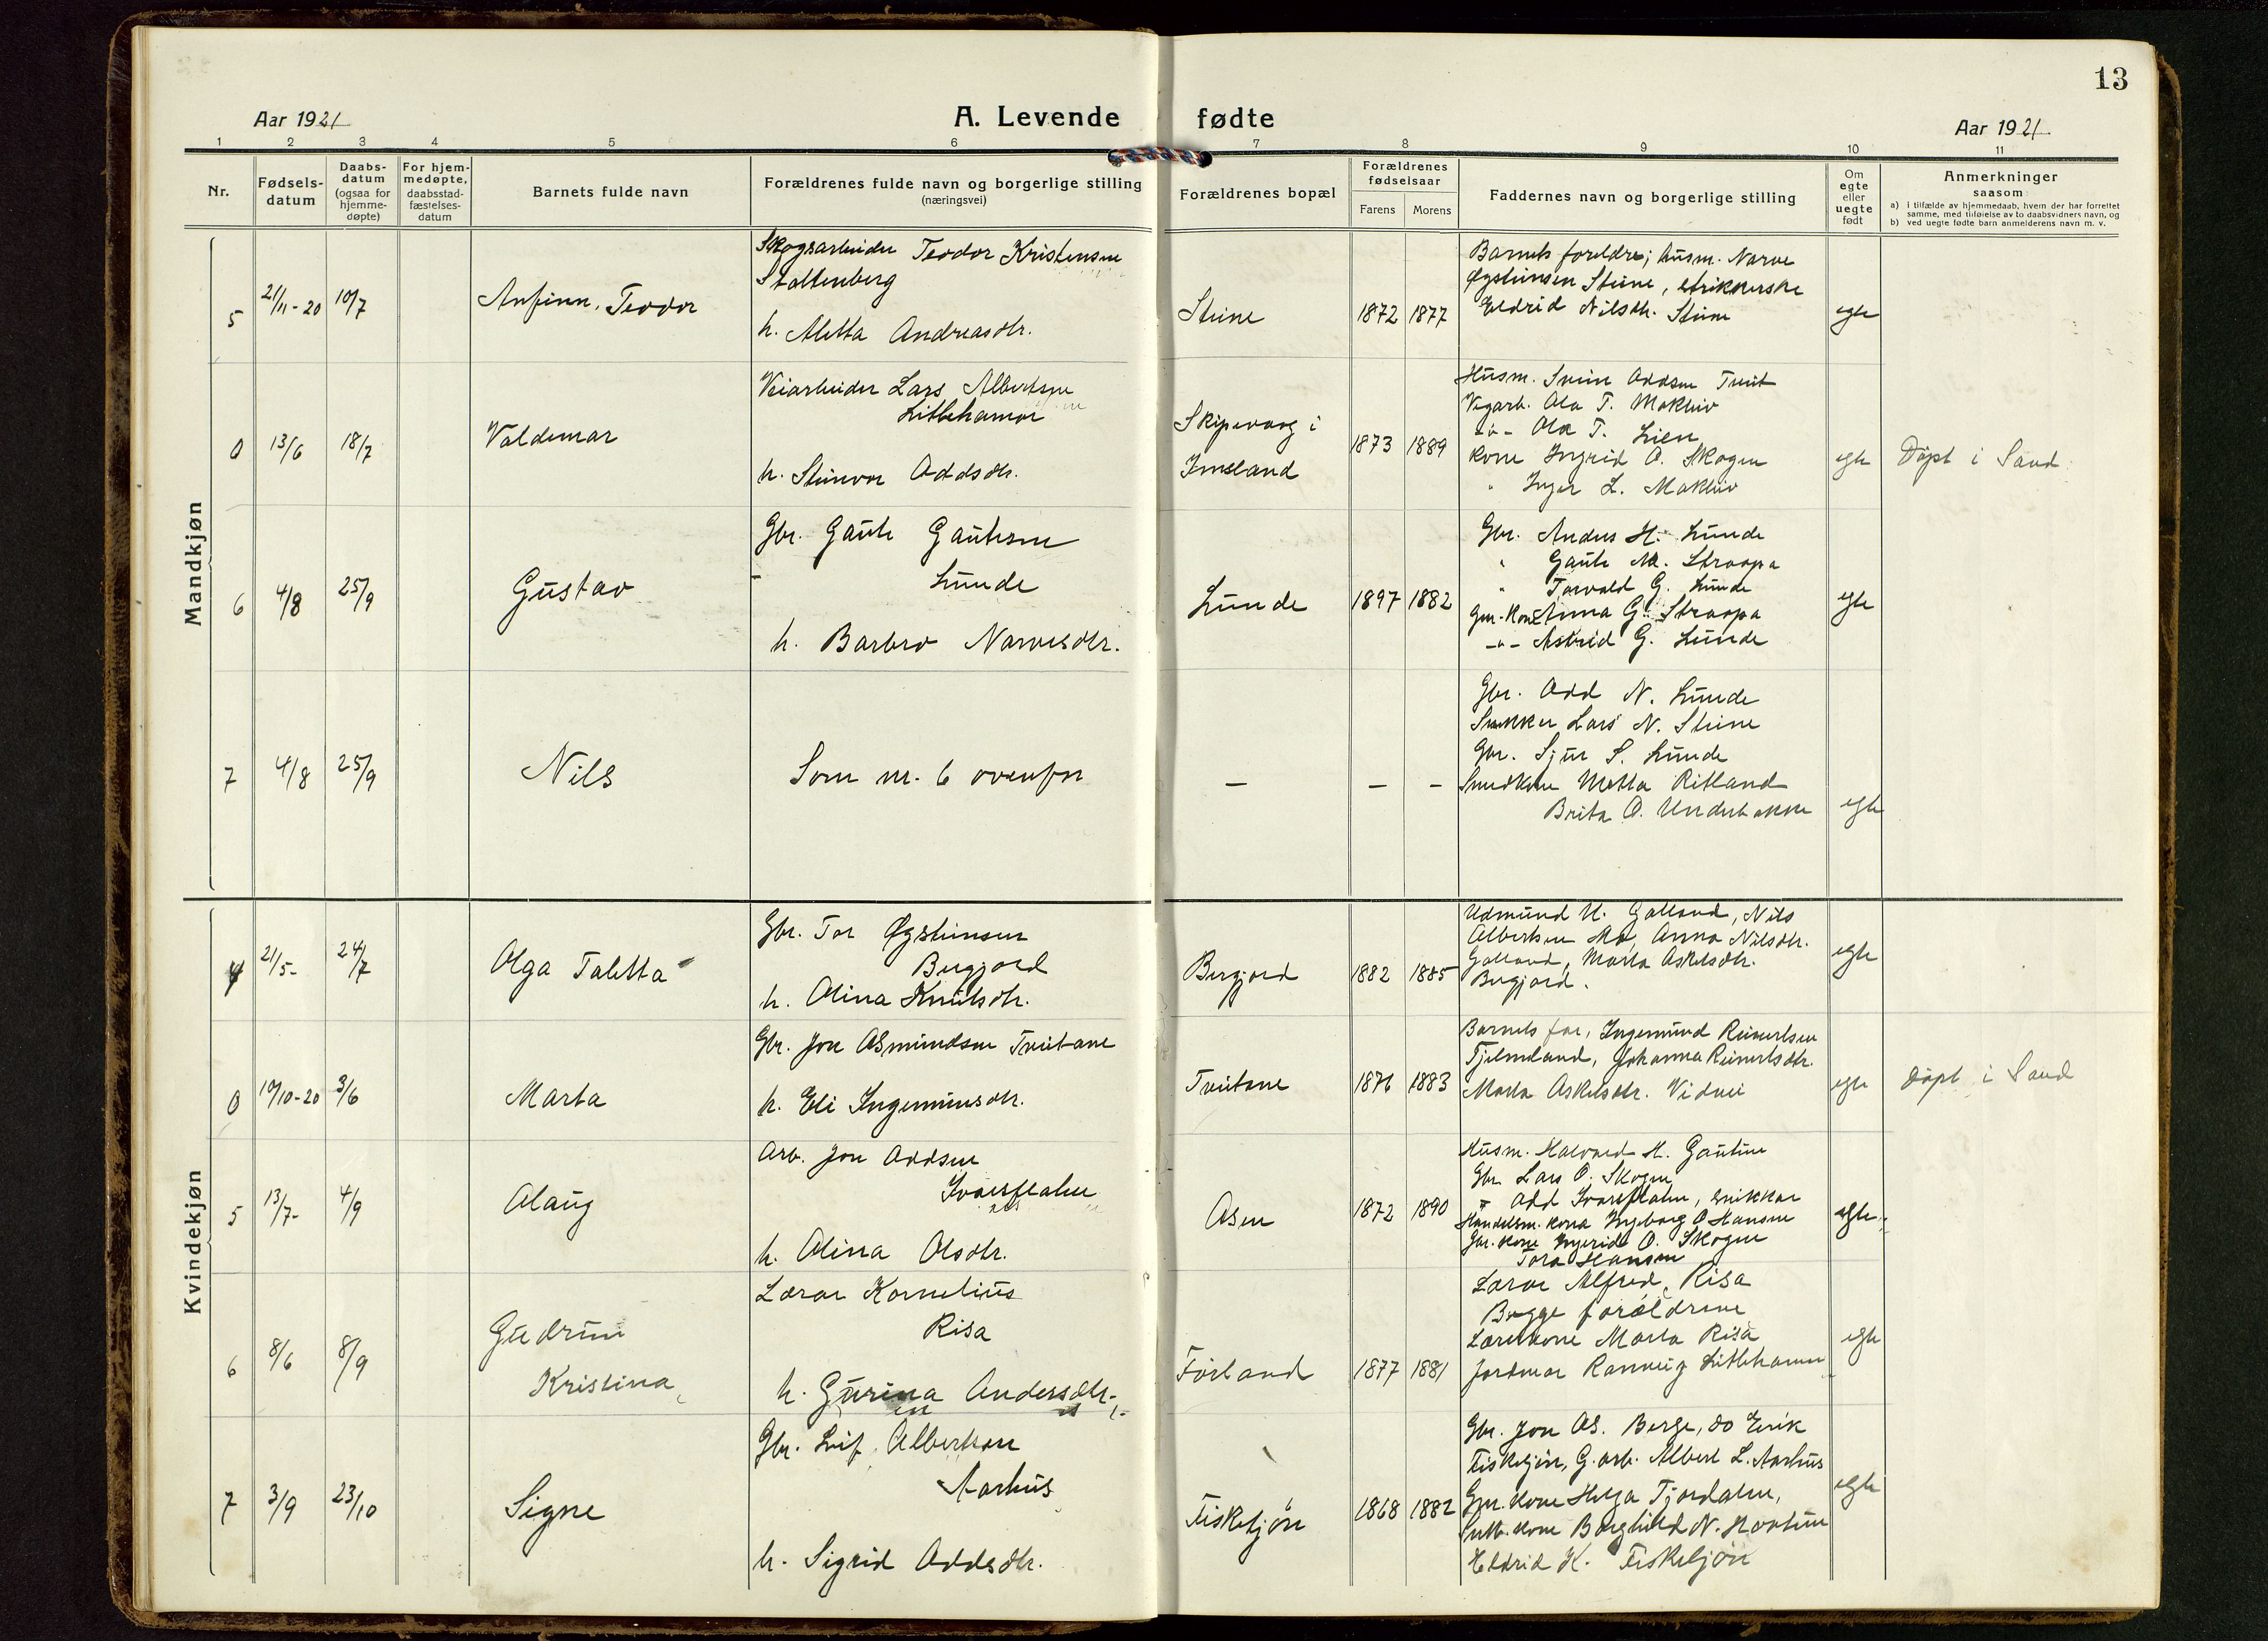 13
Aar 1921
A. Levende fødte
Aar 1921
1 2 3 4 5 6 7 8 9 10 11
Nr.
Fødsels-
datum
Daabs-
datum
(ogsaa for
hjemme-
døpte)
For hjem-
medøpte,
daabsstad-
fæstelses-
datum
Barnets fulde navn
Forældrenes fulde navn og borgerlige stilling
(næringsvei)
Forældrenes bopæl
Forældrenes
fødselsaar
Farens Morens
Faddernes navn og borgerlige stilling
Om
egte
eller
uegte
født
Anmerkninger
saasom
a) i tilfælde av hjemmedaab, hvem der har forrettet
samme, med tilføielse av to daabsvidners navn, og
b) ved uegte fødte barn anmelderens navn m. v.
Mandkjøn
5
21/11-20
10/7
Anfinn, Teodor
Skogsarbeider Teodor Kristensen
Stoltenberg
h. Aletta Andreasdtr.
Steine
1872 1877
Barnets foreldre; husm. Narve
Øysteinsen Steine, strikkerske
Eldrid Nilsdtr. Steine
egte
0
13/6
18/7
Valdemar
Veiarbeider Lars Albertsen
Litlehamar
h. Steinvor Oddsdtr.
Skipevaag i
Imsland
1873 1889
Husm. Svein Oddsen Tveit
Vegarb. Ola T. Mokleiv
-"- Ola T. Lien
kone Ingrid O. Skogen
" Inger L. Mokleiv
egte
Døpt i Sand
6
4/8
25/9
Gustav
Gbr. Gaute Gautesen
Lunde
h. Barbro Narvesdtr.
Lunde
1897 1882
Gbr. Anders H. Lunde
" Gaute M. Straapa
" Torvald G. Lunde
Gbr.-kone Anna G. Straapa
-"- Astrid G. Lunde
egte
7
4/8
25/9
Nils
Som nr. 6 ovenfor
— — —
Gbr. Odd N. Lunde
Snekker Lars N. Steine
Gbr. Sjur S. Lunde
Smedkone Metta Ritland
Brita O. Underbakke
egte
Kvindekjøn
4
21/5-
24/7
Olga Taletta
Gbr. Tor Øysteinsen
Bergjord
h. Olina Knutsdtr.
Bergjord
1882 1885
Udmund U. Galland, Nils
Albertsen Mo, Anna Nilsdtr.
Galland, Marta Askelsdtr.
Bergjord.
egte
0
10/10-20
3/6
Marta
Gbr. Jon Osmundsen Tveitane
h. Eli Ingemunsdtr.
Tveitane
1876 1883
Barnets far, Ingemund Reinertsen
Tjelmeland, Johanna Reinertsdtr.
Marta Askelsdtr. Vidvei
egte
døpt i Sand
5
13/7-
4/9
Olaug
Arb. Jon Oddsen
Ivarsflaten
h. Olina Olsdtr.
Osen
1872 1890
Husm. Halvard H. Gautun
Gbr. Lars O. Skogen
" Odd Ivarsflaten, snikkar
Handelsm. kona Ingeborg O Hansen
Gbr. kone Ingerid O. Skogen
Tora Hansen
egte
6
8/6
8/9
Gudrun
Kristina
Lærar Kornelius
Risa
h. Gurina Andersdtr.
Førland
1877 1881
Lærar Alfred Risa
Begge forældrene
Lærerkone Marta Risa
Jordmor Ranveig Litlehamar
egte
7
3/9
23/10
Signe
Gbr. Leif Albertsen
Aarhus
h. Sigrid Oddsdtr.
Fisketjøn
1868 1882
Gbr. Jon Os. Berge, do Eirik
Fisketjøn, G.arb. Albert L. Aarhus
Gbr. kone Helga Tjordalen,
kone Borghild N.
Eldrid K. Fisketjøn
egte